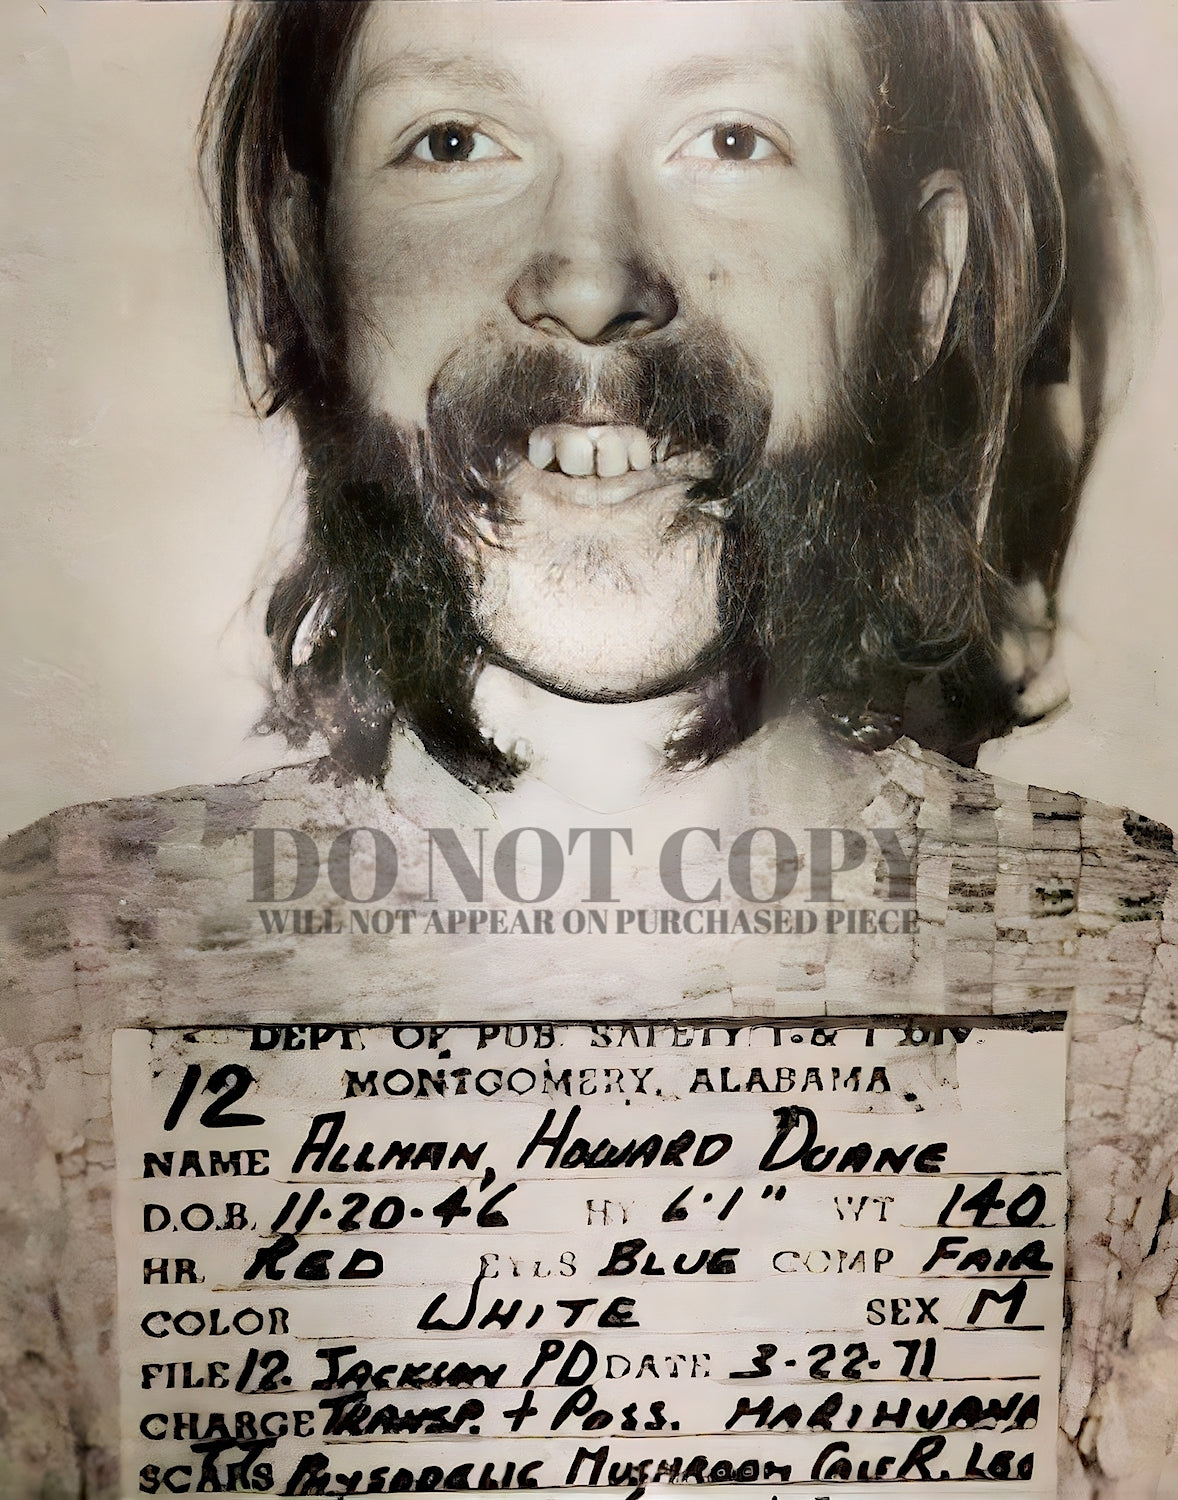 DO NOT COPY
WILL NOT APPEAR ON PURCHASED PIECE
DEPT OF PUB SAFETY I. & I DIV.
12 MONTGOMERY, ALABAMA
NAME ALLMAN, HOWARD DUANE
D.O.B. 11-20-46 HT 6'1" WT 140
HR RED EYES BLUE COMP FAIR
COLOR WHITE SEX M
FILE 12. JACKSON PD DATE 3-22-71
CHARGE TRANSP. + POSS. MARIHUANA
SCARS MUSHROOM CALF R. LEG